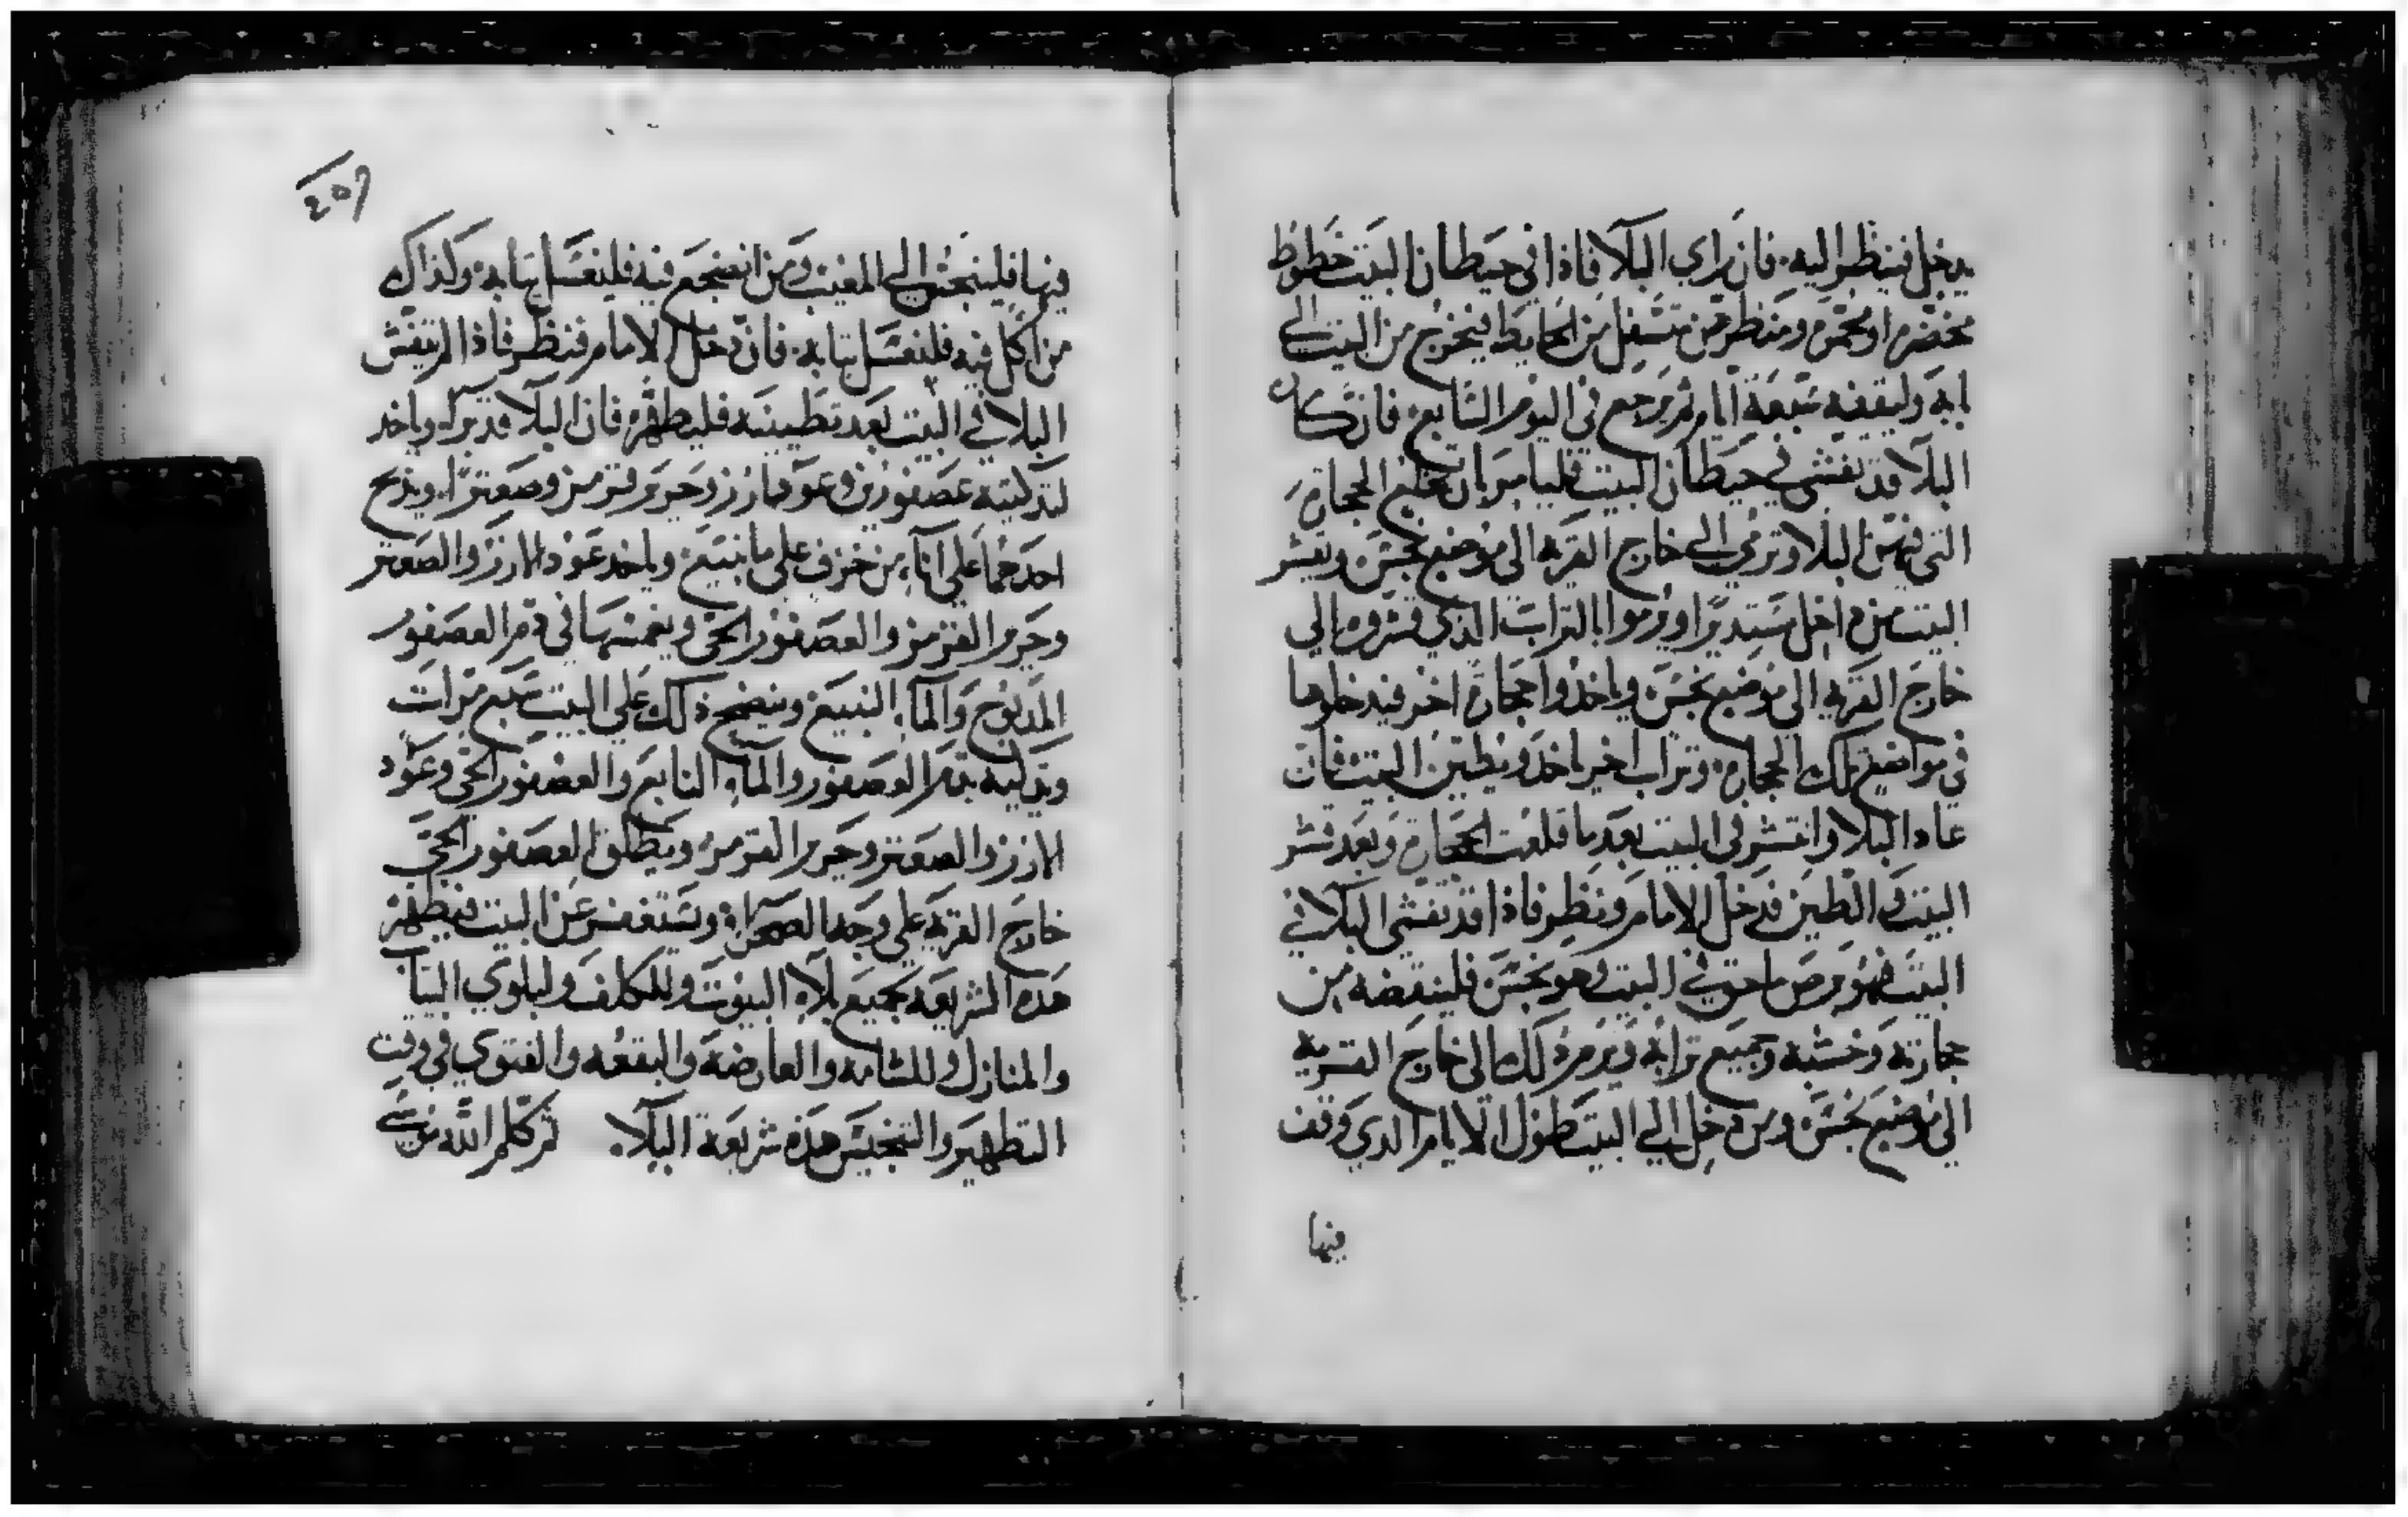 يدخل فينظر اليه. فان راي البلا فاذا في حيطان البيت خطوط
مخضره او محمره ومنظرهن متسفل من الحايط فيخرج من البيت الي
بابه وليقفه سبعة ايام ثم يرجع في اليوم السابع فان كان
البلا قد تفشي في حيطان البيت فليامر بان تخلع الحجاره
التي فيهن البلا وترمي الي خارج القريه الي موضع نجس وتقشر
البيت من داخل مستديرا ويرموا بالتراب الذي قشروه الي
خارج القريه الي موضع نجس وياخذوا حجاره اخر فيدخلوها
في مواضع تلك الحجاره وتراب اخر ياخذ ويطين البيت فان
عاد البلا وانتشر في البيت بعد ما قلعت الحجاره وبعد قشر
البيت والطين فدخل الامام ونظر فاذا قد تفشي البلا في
البيت فهو برص لاحق في البيت وهو نجس فلينقضه من
حجارته وخشبه وجميع ترابه ويرم ذلك الي خارج القريه
الي موضع نجس ومن دخل الي البيت طول الايام الذي وقف
فيها
207
فيها فلينجس الي المغيب ومن انضجع فيه فليغسل ثيابه وكذاك
من اكل فيه فليغسل ثيابه. فان دخل الامام فنظر فاذا لم يتفش
البلا في البيت بعد تطيينه فليطهره فان البلا قد برا. وياخد
لتدكيته عصفورين وعود ارز وحرير قرمز وصعترا. ويذبح
احدهما علي اناء من خزف علي ما نبيع وياخد عود الارز والصعتر
وحرير القرمز والعصفور الحي ويغمسها في دم العصفور
المذبوح والماء النبيع وينضح ذلك علي البيت سبع مرات
ويذكيه بدم العصفور والماء النابع والعصفور الحي وعود
الارز والصعتر وحرير القرمز ويطلق العصفور الحي
خارج القريه علي وجه الصحراء ويستغفر عن البيت فيطهر
هذه الشريعه لجميع بلاء البيوت وللكلف ولبلوي الثياب
والمنازل وللشامه والعارضه والبقعه والفتوي في وقت
التطهير والتنجيس هذه شريعة البلا. ثم كلم الله موسي